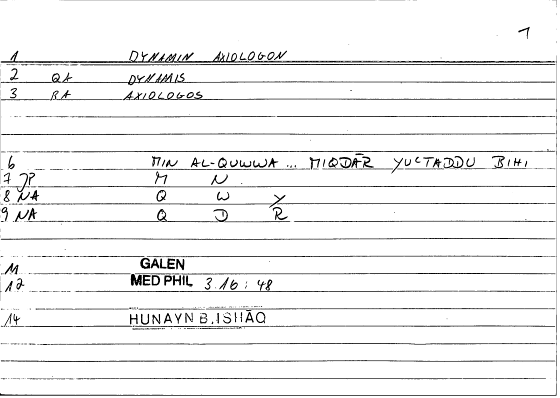 7
1 DYNAMIN AXIOLOGON
2 QA DYNAMIS
3 RA AXIOLOGOS
6 MIN AL-QUWWA ... MIQDĀR YUʿTADDU BIHI
7 JP M N
8 NA Q W Y
9 NA Q D R
11 GALEN
12 MED PHIL 3.16 : 48
14 HUNAYN B. ISHĀQ